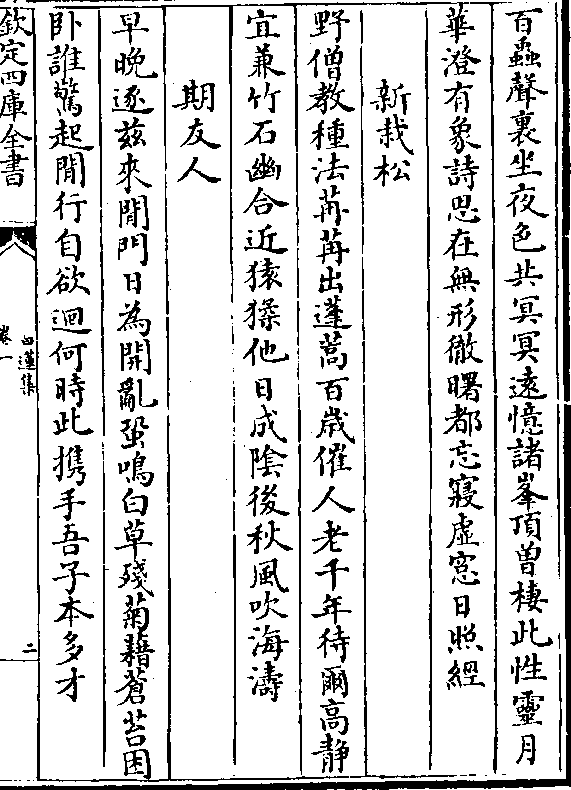 百蟲聲裏坐夜色共冥冥遠憶諸峯頂曽棲此性靈月
華澄有象詩思在無形徹曙都忘寢虚窓日照經
新栽松
野僧教種法苒苒出蓬蒿百歲催人老千年待爾高静
宜兼竹石幽合近猿猱他日成陰後秋風吹海濤
期友人
早晚逐兹來閒門日為開亂蛩鳴白草殘菊藉蒼苔困
卧誰驚起閒行自欲迴何時此携手吾子本多才
欽定四庫全書
白蓮集
卷一
二